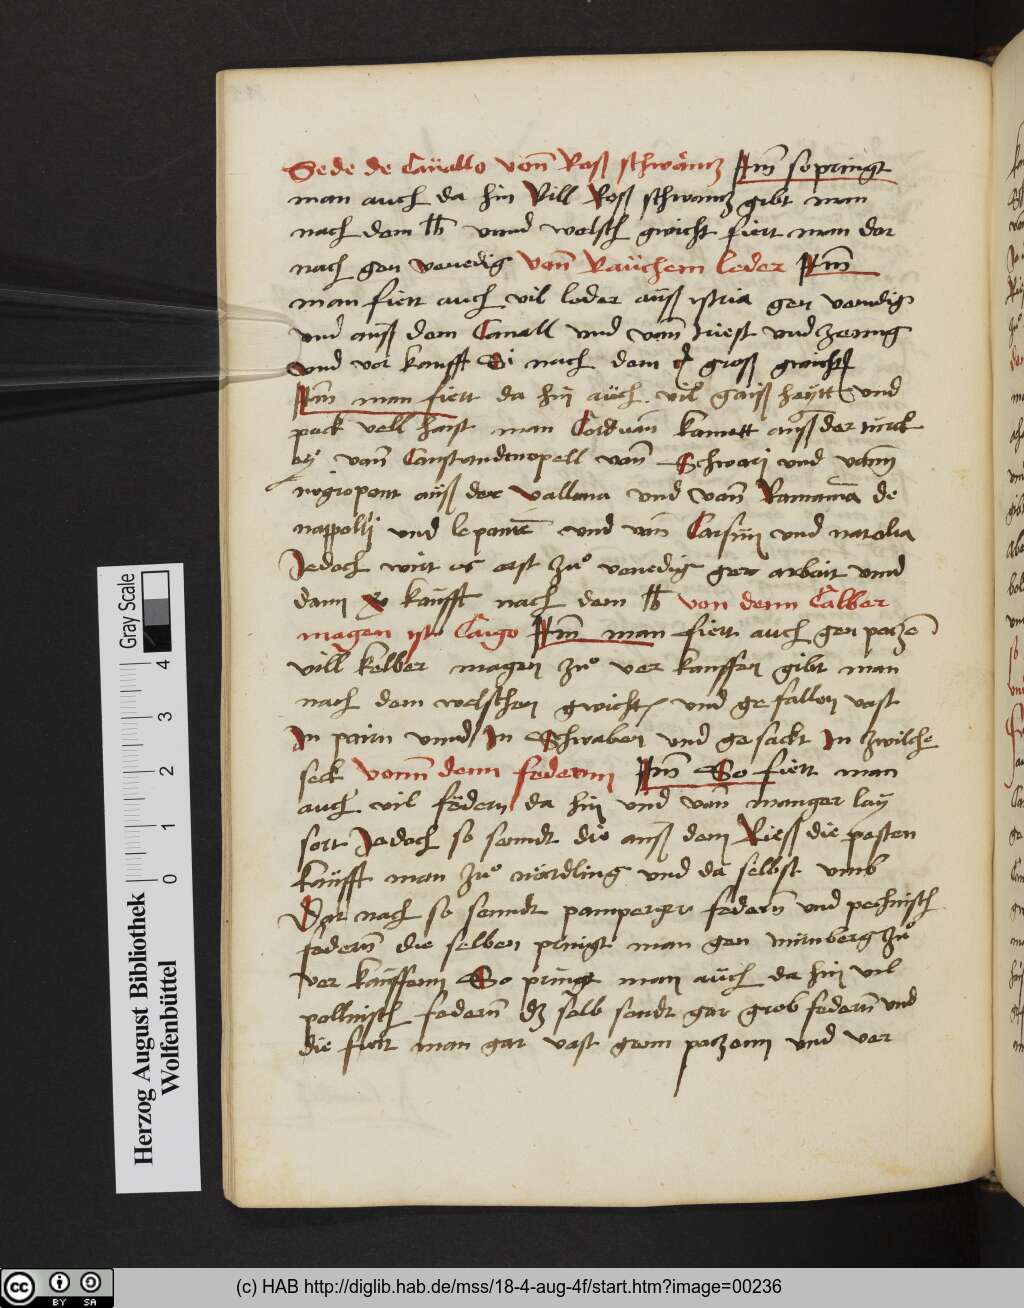 Sede de Cauallo vonn Roß schwäntz Itm so pringt
man auch da hin vill Roß schwantz gibt man
nach dem lb vnnd welsch gwicht fiert man dar
nach gen venedig vonn Rauchem leder Itm
man fiert auch vil leder auß istria gen venedig
vnd auß dem Canall vnd vonn triest vnd zenng
vnd ver kaufft Si nach dem groß gwicht
Itm man fiert da hin auch vil gaiß heytt vnd
pock vell haist man Corduan kumett auß der türck
ey vonn Constandtinopell vonn Schwarj vnd vonn
nigropont auß der vallona vnd vonn Romania de
nappollj vnd lepantt vnd vonn Corfun vnd natolia
Jedoch wirt es erst zuo venedig ger arbait vnnd
dann kaufft nach dem lb von denn Calber
magen ist Caigo Itm man fiert auch gen potzen
vill kelber magen zuo ver kauffen gibt man
nach dem welschen gwicht vnd ge fallen vast
In pairn vnnd In Schwaben vnd ge sackt In zwilche
seck vonn denn federnn Itm So fiert man
auch vil federn da hin vnd vonn manger lay
sort Jedoch so senndt die auß dem Rieß die pesten
kaufft man zuo nördling vnd da selbst vmb
Dar nach so senndt pamperger federn vnd pechmisch
federn die selben pringt man gen nürnberg zuo
ver kauffenn So pringt man auch da hin vil
pollnisch federn dz selb sendt gar grob federn vnd
die fiert man gar vast genn potzenn vnd ver
Gray Scale
0 1 2 3 4
Herzog August Bibliothek
Wolfenbüttel
cc BY SA
(c) HAB http://diglib.hab.de/mss/18-4-aug-4f/start.htm?image=00236